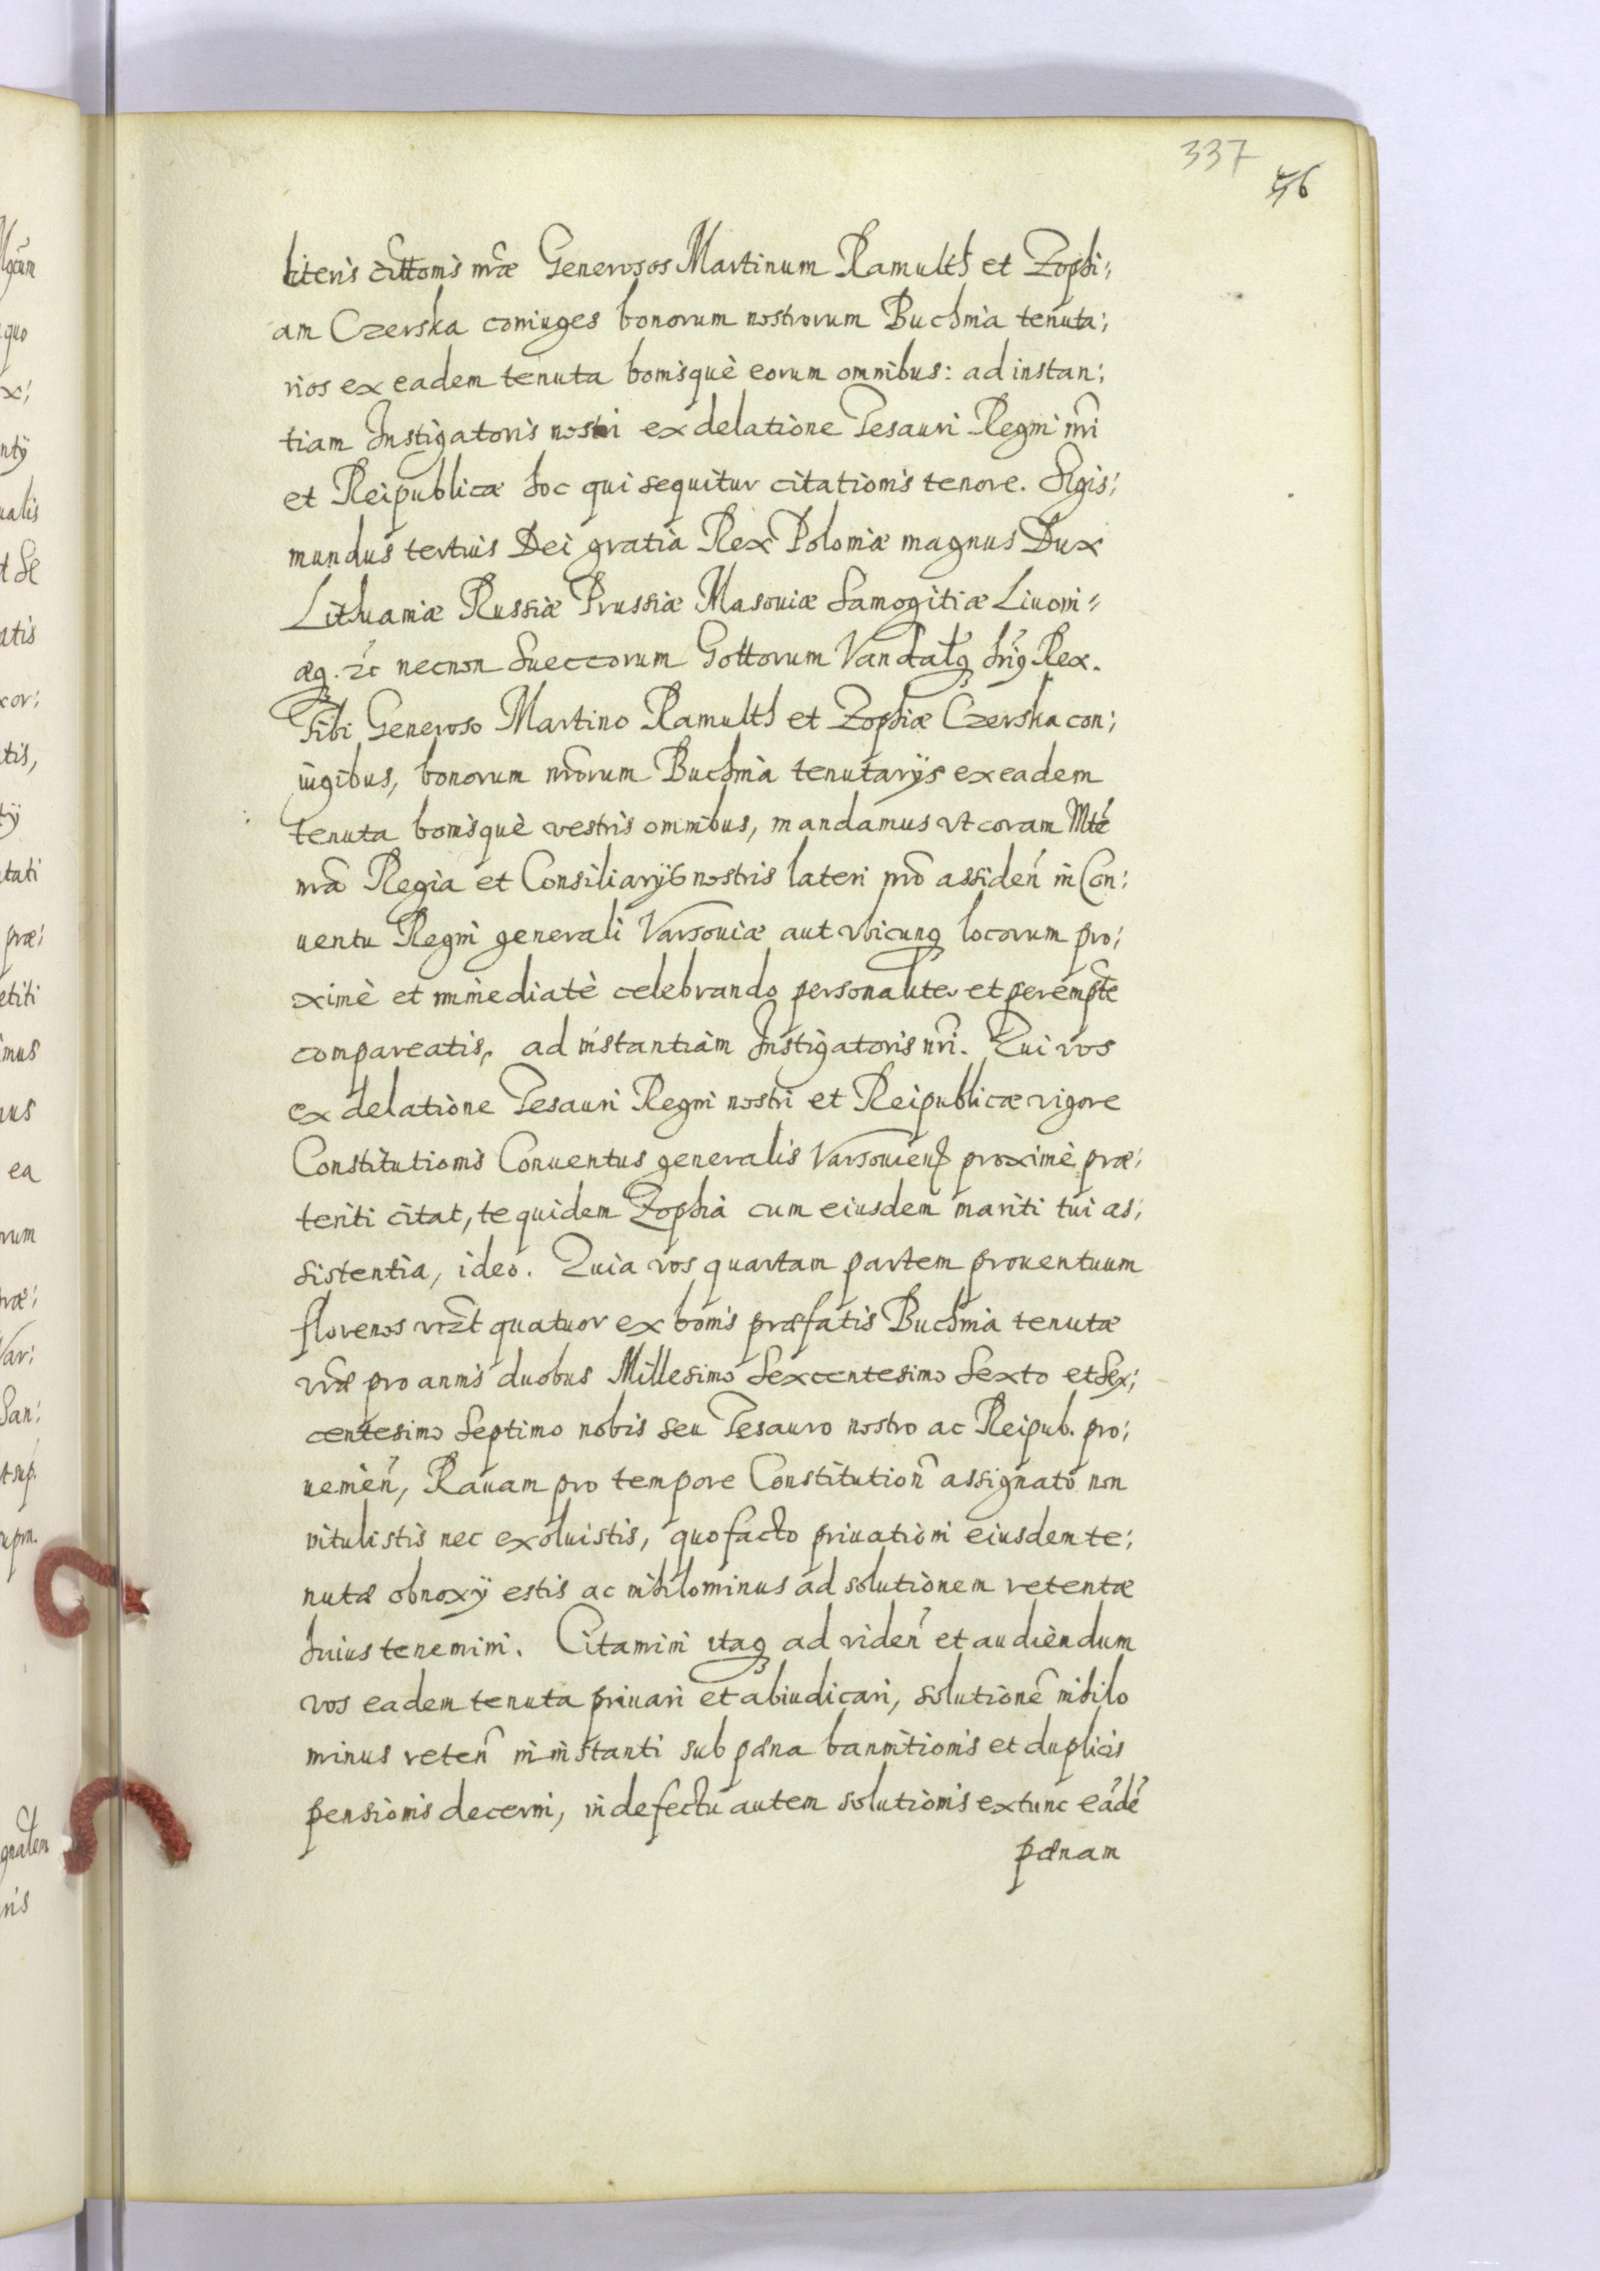 337
56
literis cittõnis nr̃æ Generosos Martinum Ramulth et Zophi⸗
am Czerska coniuges bonorum nostrorum Buchnia tenuta;
rios ex eadem tenuta bonisquè eorum omnibus: ad instan;
tiam Instigatoris nostri ex delatione Tesauri Regni nr̃i
et Reipublicæ hoc qui sequitur citationis tenore. Sigis;
mundus tertius Dei gratia Rex Poloniæ magnus Dux
Lithuaniæ Russiæ Prussiæ Masouiæ Samogitiæ Liuoni⸗
æq. &c necnon Sueccorum Gottorum Vandalq́ hriq́ Rex.
Tibi Generoso Martino Ramulth et Zophiæ Czerska con;
iugibus, bonorum nr̃orum Buchnia tenutarijs ex eadem
tenuta bonisquè vestris omnibus, mandamus vt coram Mte
nr̃a Regia et Consiliarijs nostris lateri nr̃o assideñ in Con;
uentu Regni generali Varsouiæ aut vbicunq locorum pro;
ximè et immediatè celebrando personaliter et peremp̃te
compareatis, ad instantiam Instigatoris nr̃i. Qui vos
ex delatione Tesauri Regni nostri et Reipublicæ vigore
Constitutionis Conuentus generalis Varsouieñ proximè præ;
teriti citat, te quidem Zophia cum eiusdem mariti tui as;
sistentia, ideo. Quia vos quartam partem prouentuum
florenos vizt quatuor ex bonis præfatis Buchnia tenutæ
vr̃æ pro annis duobus Millesimo Sexcentesimo Sexto et Sex;
centesimo Septimo nobis seu Tesauro nostro ac Reipub. pro;
uenieñ, Rauam pro tempore Constitutioñ assignato non
intulistis nec exoluistis, quo facto priuationi eiusdem te;
nutæ obnoxÿ estis ac nihilominus ad solutionem retentæ
huius tenemini. Citamini itaq ad videñ et audiendum
vos eadem tenuta priuari et abiudicari, solutionẽ nihilo
minus reteñ in instanti sub pæna bannitionis et duplicis
pensionis decerni, in defectu autem solutionis extunc eãdẽ
pænam